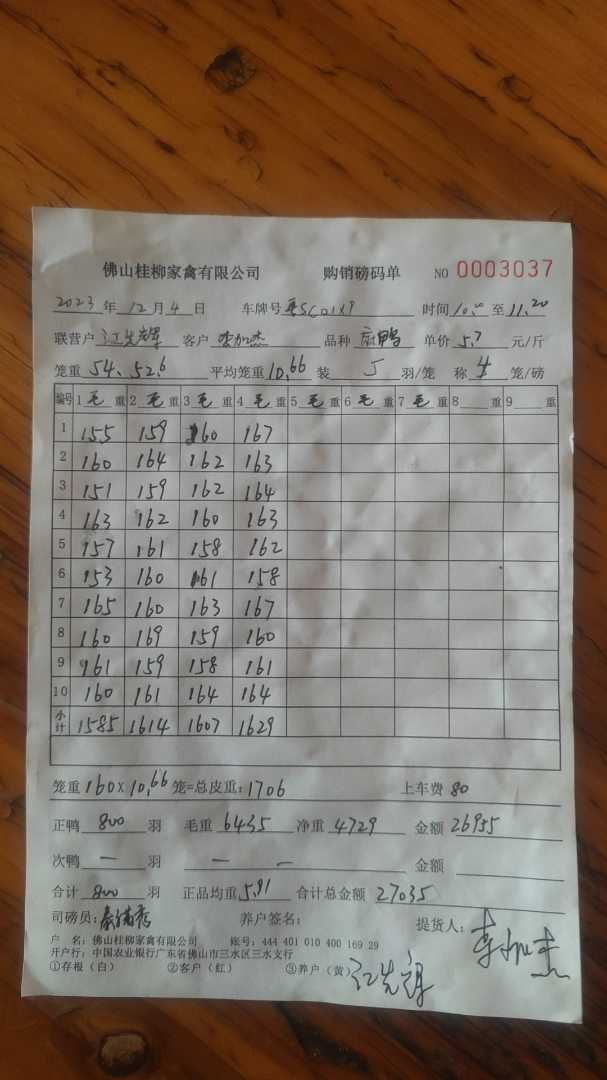 佛山桂柳家禽有限公司 购销磅码单 NO 0003037
2023 年 12 月 4 日 车牌号 时间 10.00 至 11.20
联营户 江先辉 客户 李加杰 品种 单价 5.7 元/斤
笼重 54、52.6 平均笼重 10.66 装 5 羽/笼 称 4 笼/磅
编号 1 毛 重 2 毛 重 3 毛 重 4 毛 重 5 毛 重 6 毛 重 7 毛 重 8 重 9 重
1 155 159 160 167
2 160 164 162 163
3 151 159 162 164
4 163 162 160 163
5 157 161 158 162
6 153 160 161 158
7 165 160 163 167
8 160 169 159 160
9 161 159 158 161
10 160 161 164 164
小计 1585 1614 1607 1629
笼重 160 x 10.66 笼=总皮重: 1706 上车费 80
正鸭 800 羽 毛重 6435 净重 4729 金额 26955
次鸭 — 羽 — — 金额
合计 800 羽 正品均重 5.91 合计总金额 27035
司磅员: 养户签名: 提货人: 李加杰
户 名: 佛山桂柳家禽有限公司 账号: 444 401 010 400 169 29
开户行: 中国农业银行广东省佛山市三水区三水支行
①存根（白） ②客户（红） ③养户（黄） 江先辉